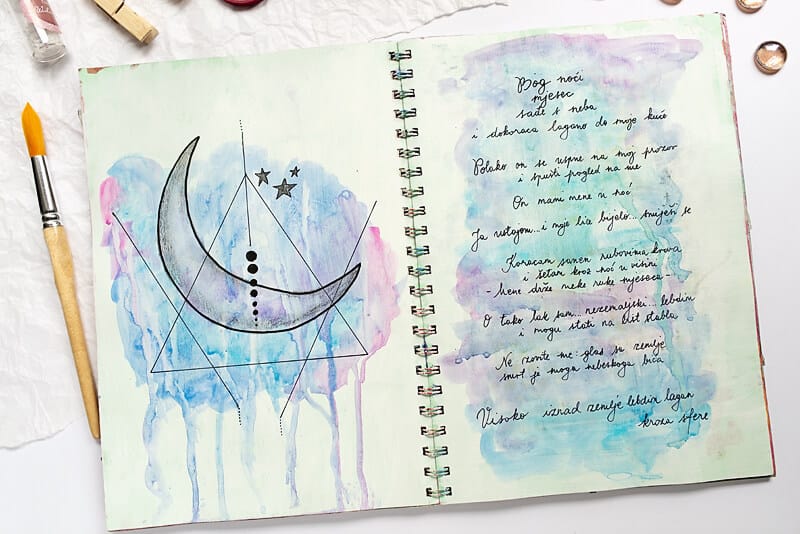 Bog noći
mjesec
sađe s neba
i dokoraca lagano do moje kuće
Polako on se uspne na moj prozor
i spusti pogled na me
On mami mene u noć
Ja ustajem... i moje lice bijelo... smiješi se
Koracam sanen rubovima krova
i šetam kroz noć u visini
- Mene drže meke ruke mjeseca -
O tako lak sam... nezemaljski... lebdim
i mogu stati na list stabla
Ne zovite me: glas sa zemlje
smrt je moga nebeskoga bića
Visoko iznad zemlje lebdim lagan
kroza sfere